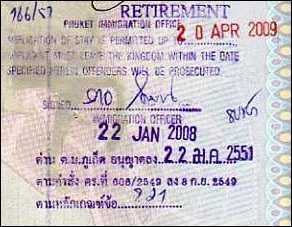 766/51 RETIREMENT
PHUKET IMMIGRATION OFFICE
APPLICATION OF STAY IS PERMITTED UP TO 20 APR 2009
APPLICANT MUST LEAVE THE KINGDOM WITHIN THE DATE
SPECIFIED HEREIN. OFFENDERS WILL BE PROSECUTED.
SIGNED
IMMIGRATION OFFICER
22 JAN 2008
ด่าน ต.ม.ภูเก็ต อนุญาตลง 22 ม.ค. 2551
ตามคำสั่ง ตร.ที่ 606/2549 ลง 8 ก.ย. 2549
ตามหลักเกณฑ์ข้อ